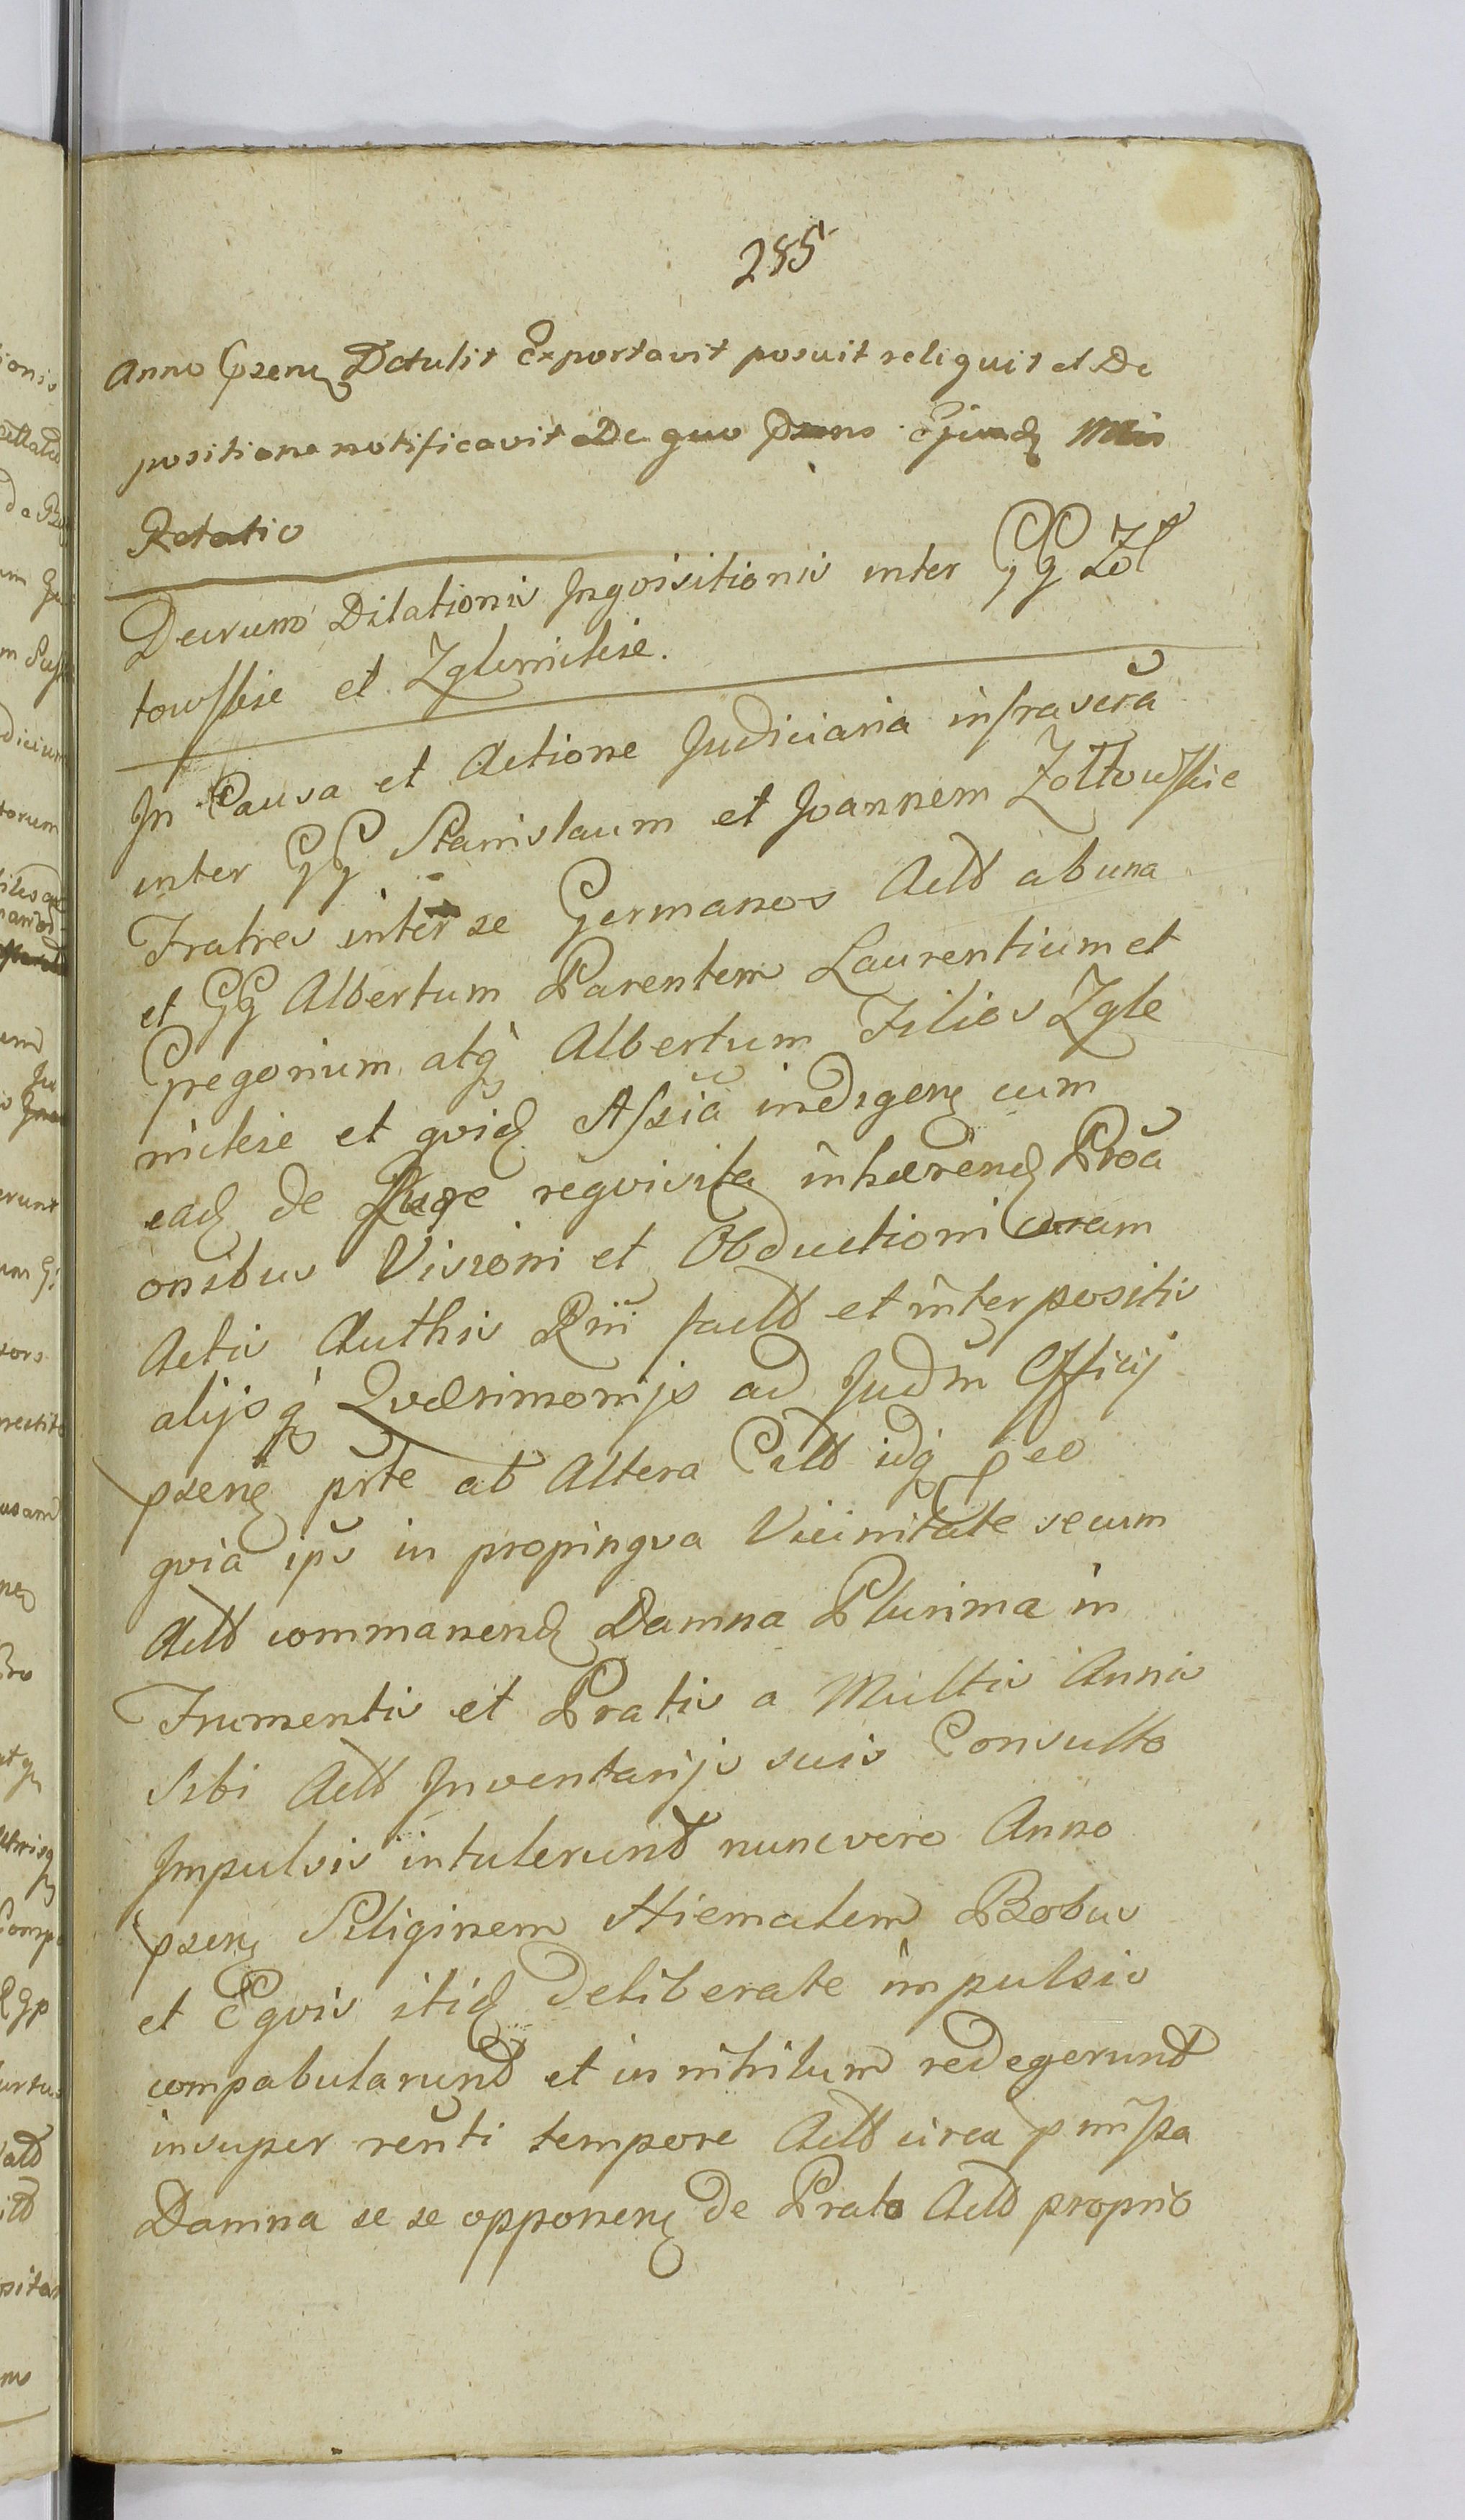 285
Anno Psenꝫ Detulit Exportavit posuit reliquit et De
positione notificavit De quo Psens Ejusdꝫ Mīs
Relatio
Decrum Dilationis Inqvisitionis inter GG Zoł
towskie et Zglenickie.
In Causa et Actione Judiciaria infrascrā
inter GG Stanislaum et Joannem Zołtowskie
Fratres inter se Germanos Actd ab una
et GG Albertum Parentem Laurentium et
Gregorium atq Albertum Filios Zgle
nickie et qvidꝫ Assiā indigenꝫ cum
eadꝫ de Jure reqvisita inhærendꝫ Proā
onibus Visioni et Obductioni coram
Actis Authis Rīī factd et interpositis
alijsq Qværimonijs ad Judm Officij
psenꝫ prte ab Altera Cittd idq p eo
qvia ips in propinqva Vicinitate secum
Actd commanendꝫ Damna Plurima in
Frumentis et Pratis a Multis Annis
Sibi Actd Inventarijs suis Consulto
Impulsis intulerund nunc vero Anno
psenꝫ Siliginem Hiemalem Bobus
et Eqvis itidꝫ deliberate impulsis
compabularund et in nihilum redegerund
insuper renti tempore Actd circa pmissa
Damna se se opponenꝫ de Prato Actd proprio